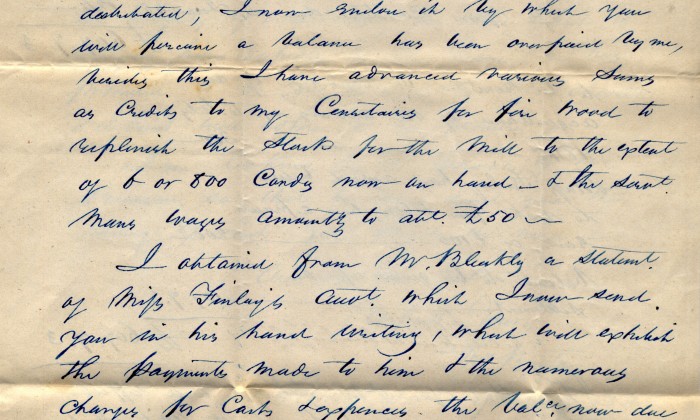 distributed, I now enclose it by which you
will perceive a balance has been overpaid by me,
besides this I have advanced various Sums
as Credits to my Censitaires for fire wood to
replenish the Stock for the Mill to the extent
of 6 or 800 Cords now on hand — & the Servt.
Mans wages amountg to abt. £50 —
I obtained from Mr. Bleakly a Statemt.
of Miss Finlay's Accot. which I now send
you in his hand writing, which will exhibit
the payments made to him & the numerous
charges for Costs & expences. the balce. now due